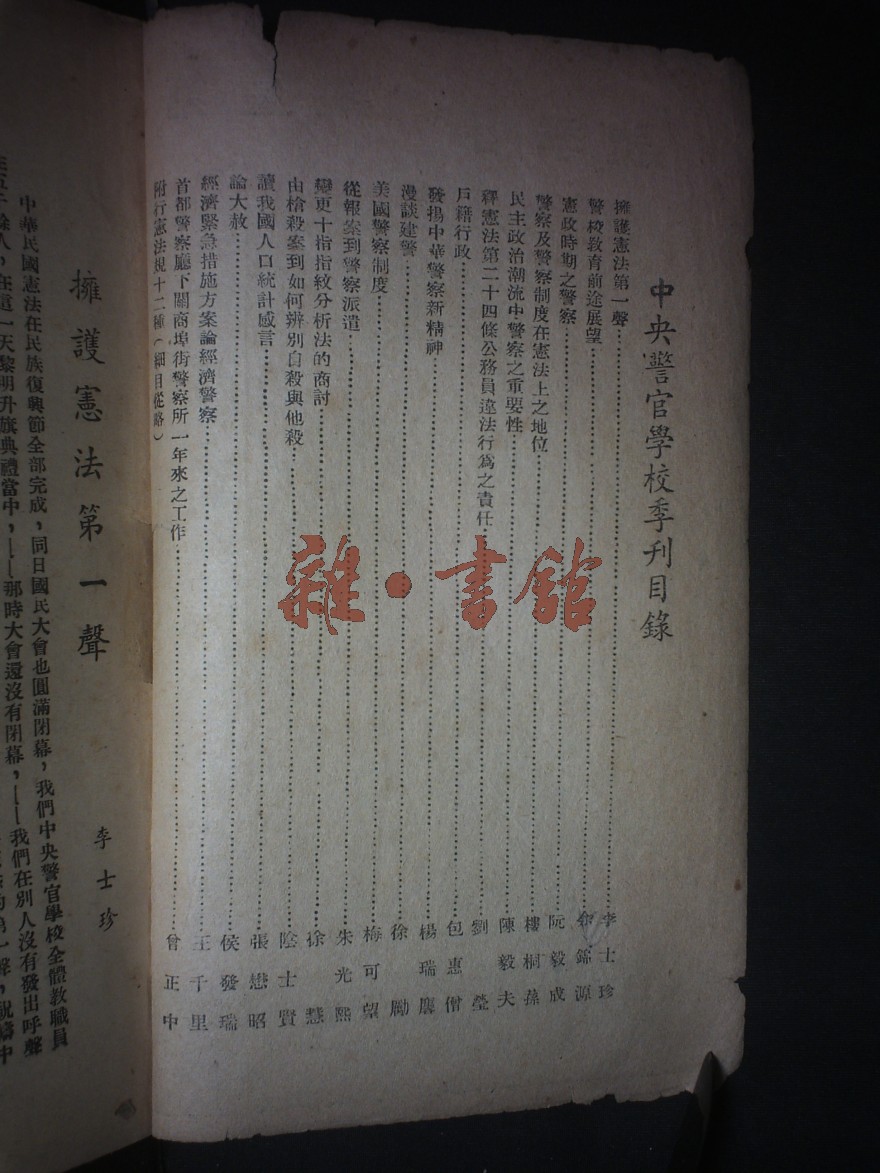 中央警官學校季刊目錄
擁護憲法第一聲……李士珍
警校教育前途展望……余錦源
憲政時期之警察……阮毅成
警察及警察制度在憲法上之地位……樓桐蓀
民主政治潮流中警察之重要性……陳毅夫
釋憲法第二十四條公務員違法行爲之責任……劉瑩
戶籍行政……包惠僧
發揚中華警察新精神……楊瑞麐
漫談建警……徐勵
美國警察制度……梅可望
從報案到警察派遣……朱光熙
變更十指指紋分析法的商討……徐慧
由槍殺案到如何辨別自殺與他殺……陰士賢
讀我國人口統計感言……張懋昭
論大赦……侯發瑞
經濟緊急措施方案論經濟警察……王千里
首都警察廳下關商埠街警察所一年來之工作……曾正中
附行憲法規十二種（細目從略）
雜·書館
擁護憲法第一聲
李士珍
中華民國憲法在民族復興節全部完成，同日國民大會也圓滿閉幕，我們中央警官學校全體教職員
餘人，在這一天黎明升旗典禮當中，——那時大會還沒有閉幕，——我們在別人沒有發出呼聲
第一聲，祝禱中